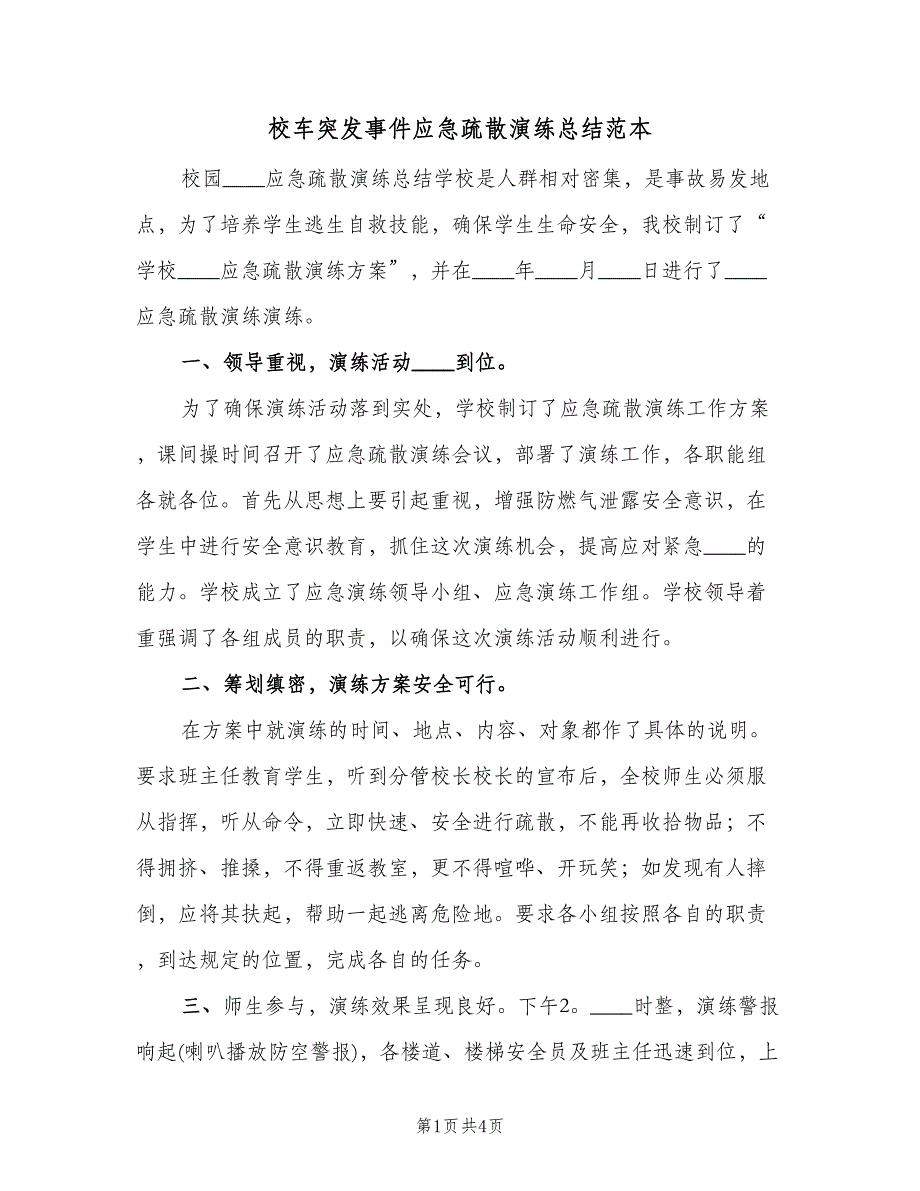 校车突发事件应急疏散演练总结范本
校园____应急疏散演练总结学校是人群相对密集，是事故易发地
点，为了培养学生逃生自救技能，确保学生生命安全，我校制订了“
学校____应急疏散演练方案”，并在____年____月____日进行了____
应急疏散演练演练。
一、领导重视，演练活动____到位。
为了确保演练活动落到实处，学校制订了应急疏散演练工作方案
，课间操时间召开了应急疏散演练会议，部署了演练工作，各职能组
各就各位。首先从思想上要引起重视，增强防燃气泄露安全意识，在
学生中进行安全意识教育，抓住这次演练机会，提高应对紧急____的
能力。学校成立了应急演练领导小组、应急演练工作组。学校领导着
重强调了各组成员的职责，以确保这次演练活动顺利进行。
二、筹划缜密，演练方案安全可行。
在方案中就演练的时间、地点、内容、对象都作了具体的说明。
要求班主任教育学生，听到分管校长校长的宣布后，全校师生必须服
从指挥，听从命令，立即快速、安全进行疏散，不能再收拾物品；不
得拥挤、推搡，不得重返教室，更不得喧哗、开玩笑；如发现有人摔
倒，应将其扶起，帮助一起逃离危险地。要求各小组按照各自的职责
，到达规定的位置，完成各自的任务。
三、师生参与，演练效果呈现良好。下午2。____时整，演练警报
响起(喇叭播放防空警报)，各楼道、楼梯安全员及班主任迅速到位，上
第1页共4页